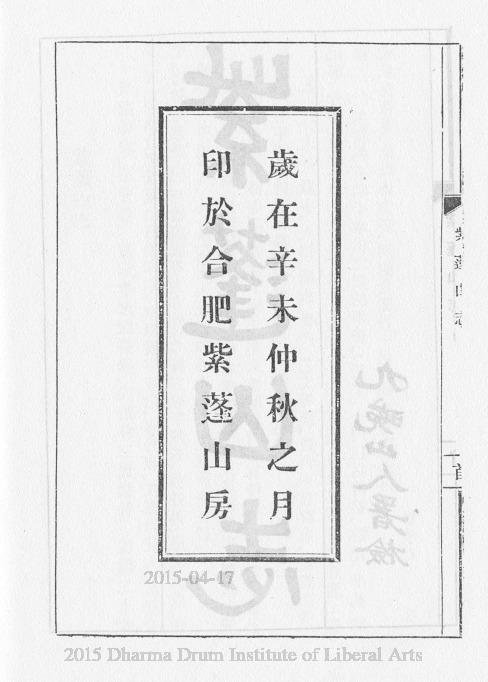 歲在辛未仲秋之月
印於合肥紫蓬山房
紫蓬山志
首
紫蓬山志
九晼山人署檢
2015-04-17
2015 Dharma Drum Institute of Liberal Arts